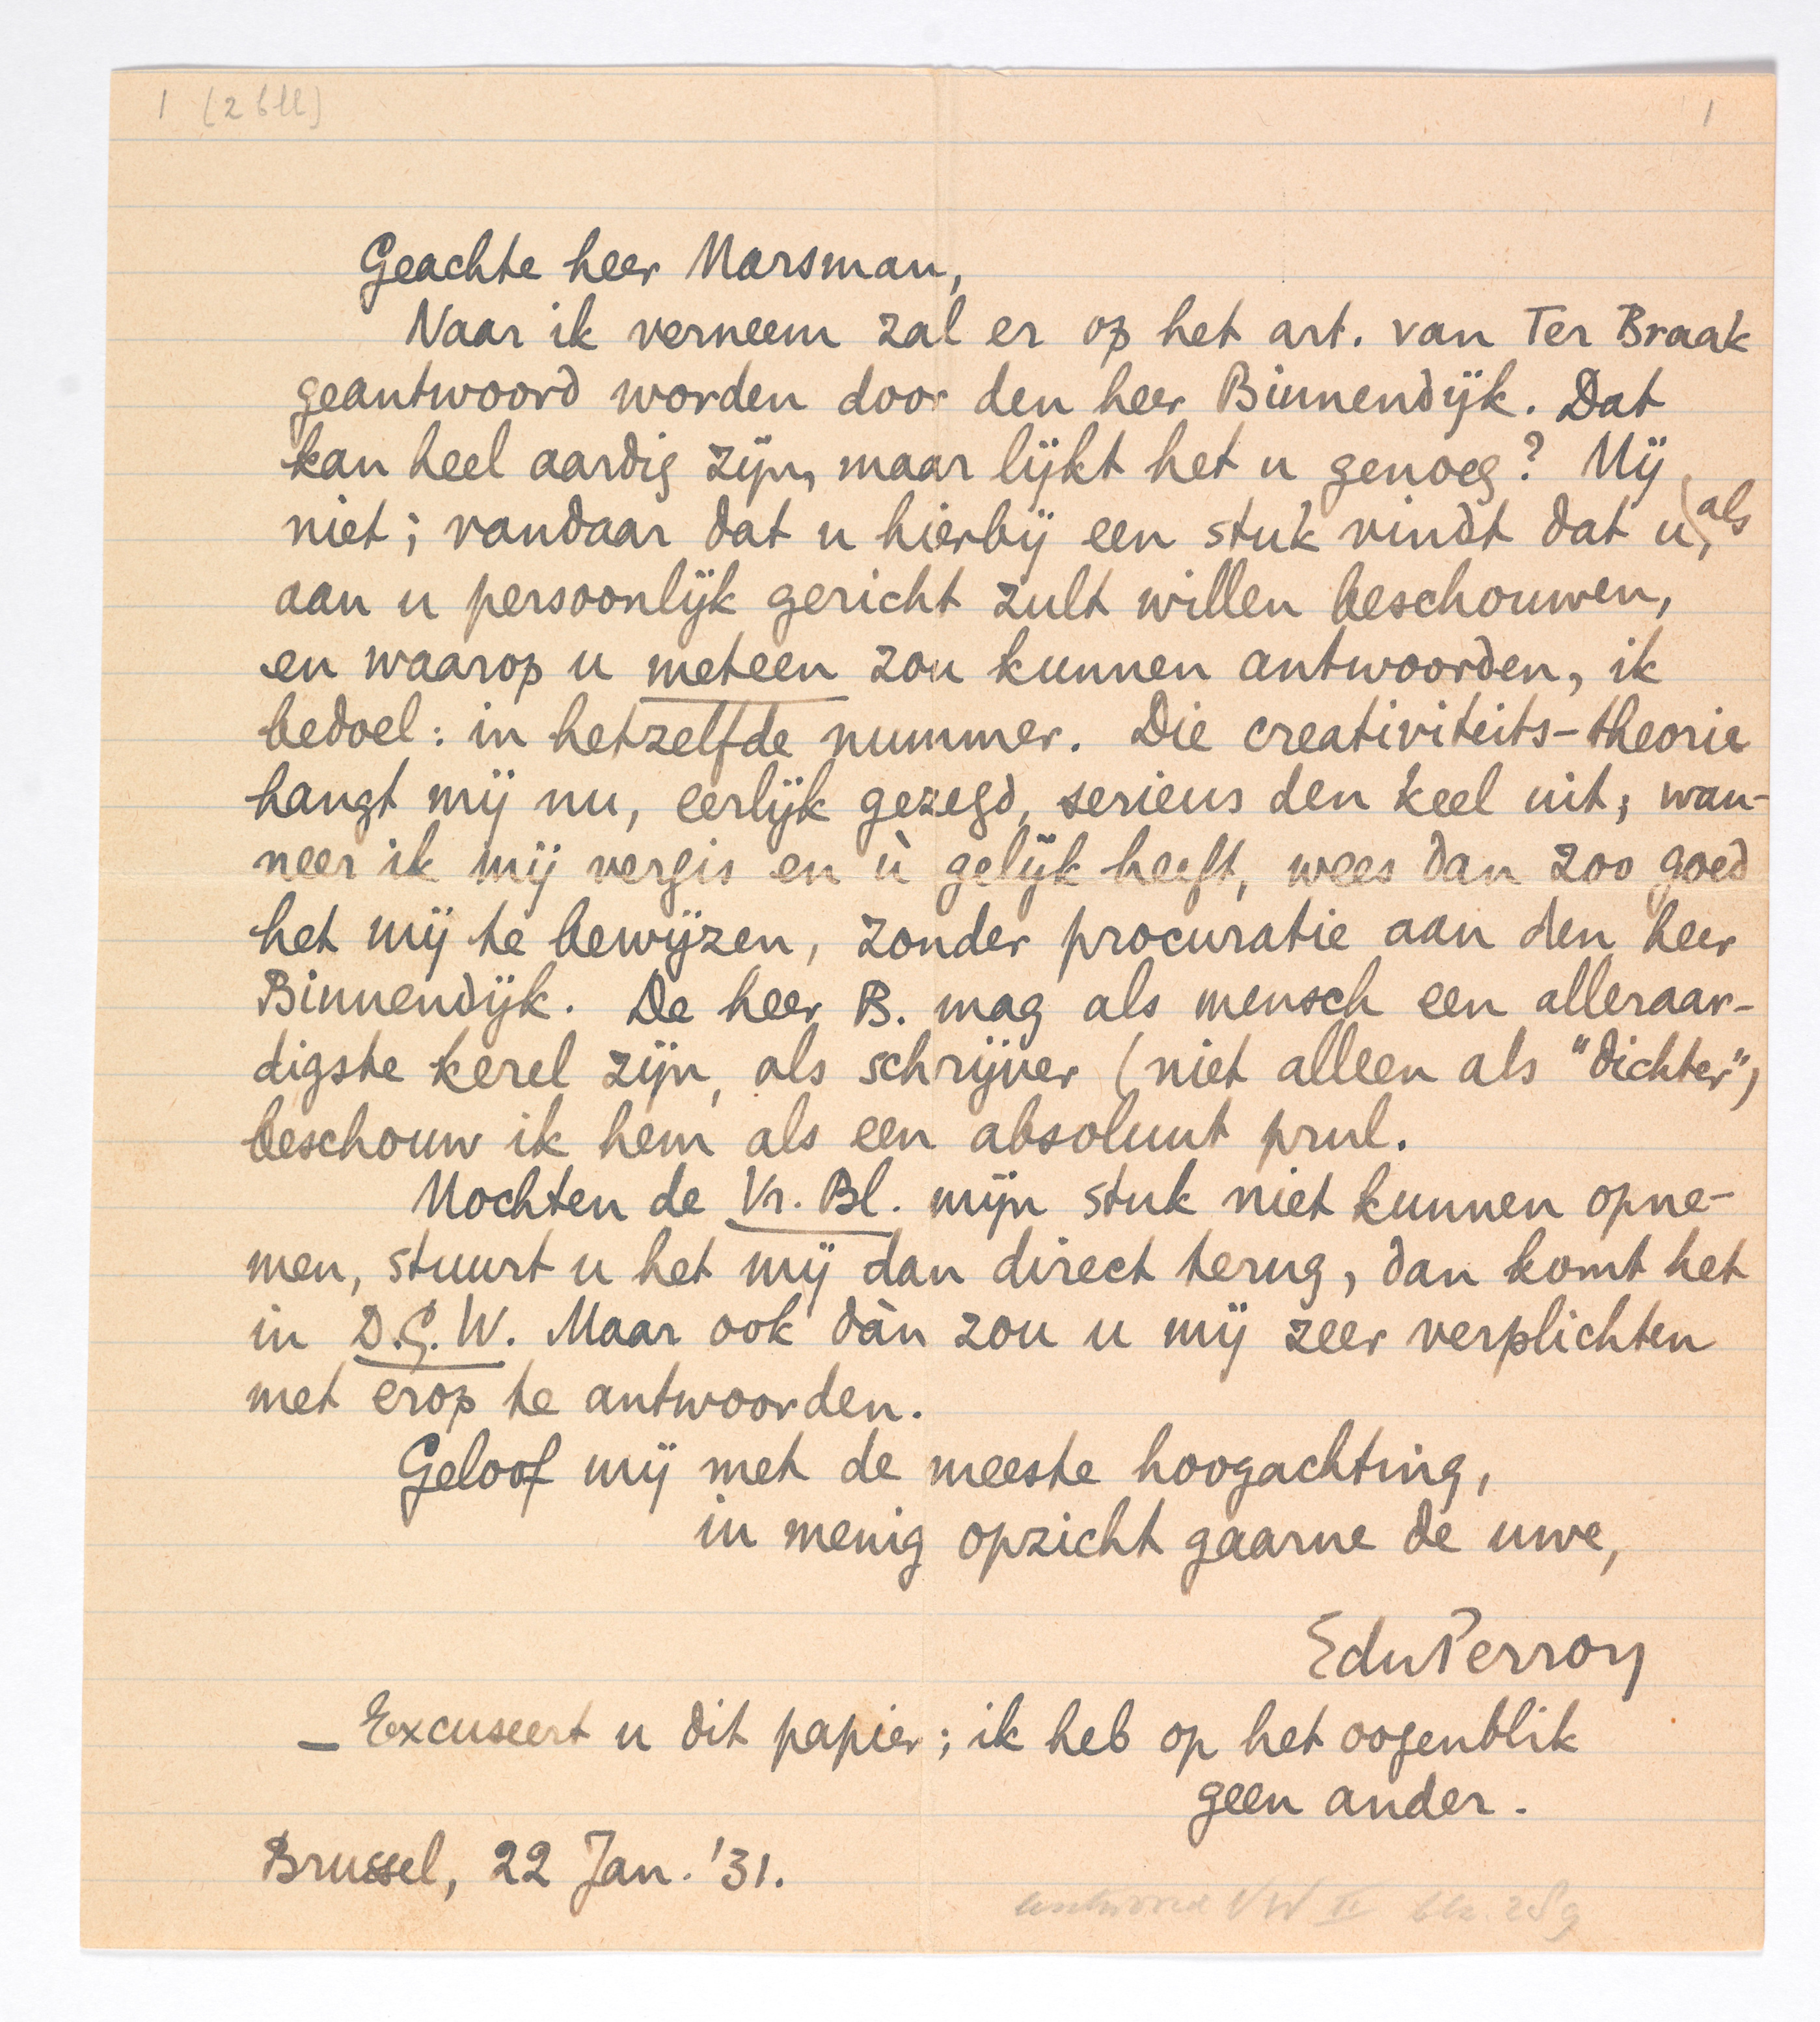 1 (2 bll) 1
Geachte heer Marsman,
Naar ik verneem zal er op het art. van Ter Braak
geantwoord worden door den heer Binnendijk. Dat
kan heel aardig zijn, maar lijkt het u genoeg? Mij
niet; vandaar dat u hierbij een stuk vindt dat u, als
aan u persoonlijk gericht zult willen beschouwen,
en waarop u meteen zou kunnen antwoorden, ik
bedoel: in hetzelfde nummer. Die creativiteits-theorie
hangt mij nu, eerlijk gezegd, serieus den keel uit; wan-
neer ik mij vergis en ù gelijk heeft, wees dan zoo goed
het mij te bewijzen, zonder procuratie aan den heer
Binnendijk. De heer B. mag als mensch een alleraar-
digste kerel zijn, als schrijver (niet alleen als "dichter")
beschouw ik hem als een absoluut prul.
Mochten de Vr. Bl. mijn stuk niet kunnen opne-
men, stuurt u het mij dan direct terug, dan komt het
in D.G.W. Maar ook dàn zou u mij zeer verplichten
met erop te antwoorden.
Geloof mij met de meeste hoogachting,
in menig opzicht gaarne de uwe,
EduPerron
— Excuseert u dit papier; ik heb op het oogenblik
geen ander.
Brussel, 22 Jan. '31.
antwoord VW II blz.